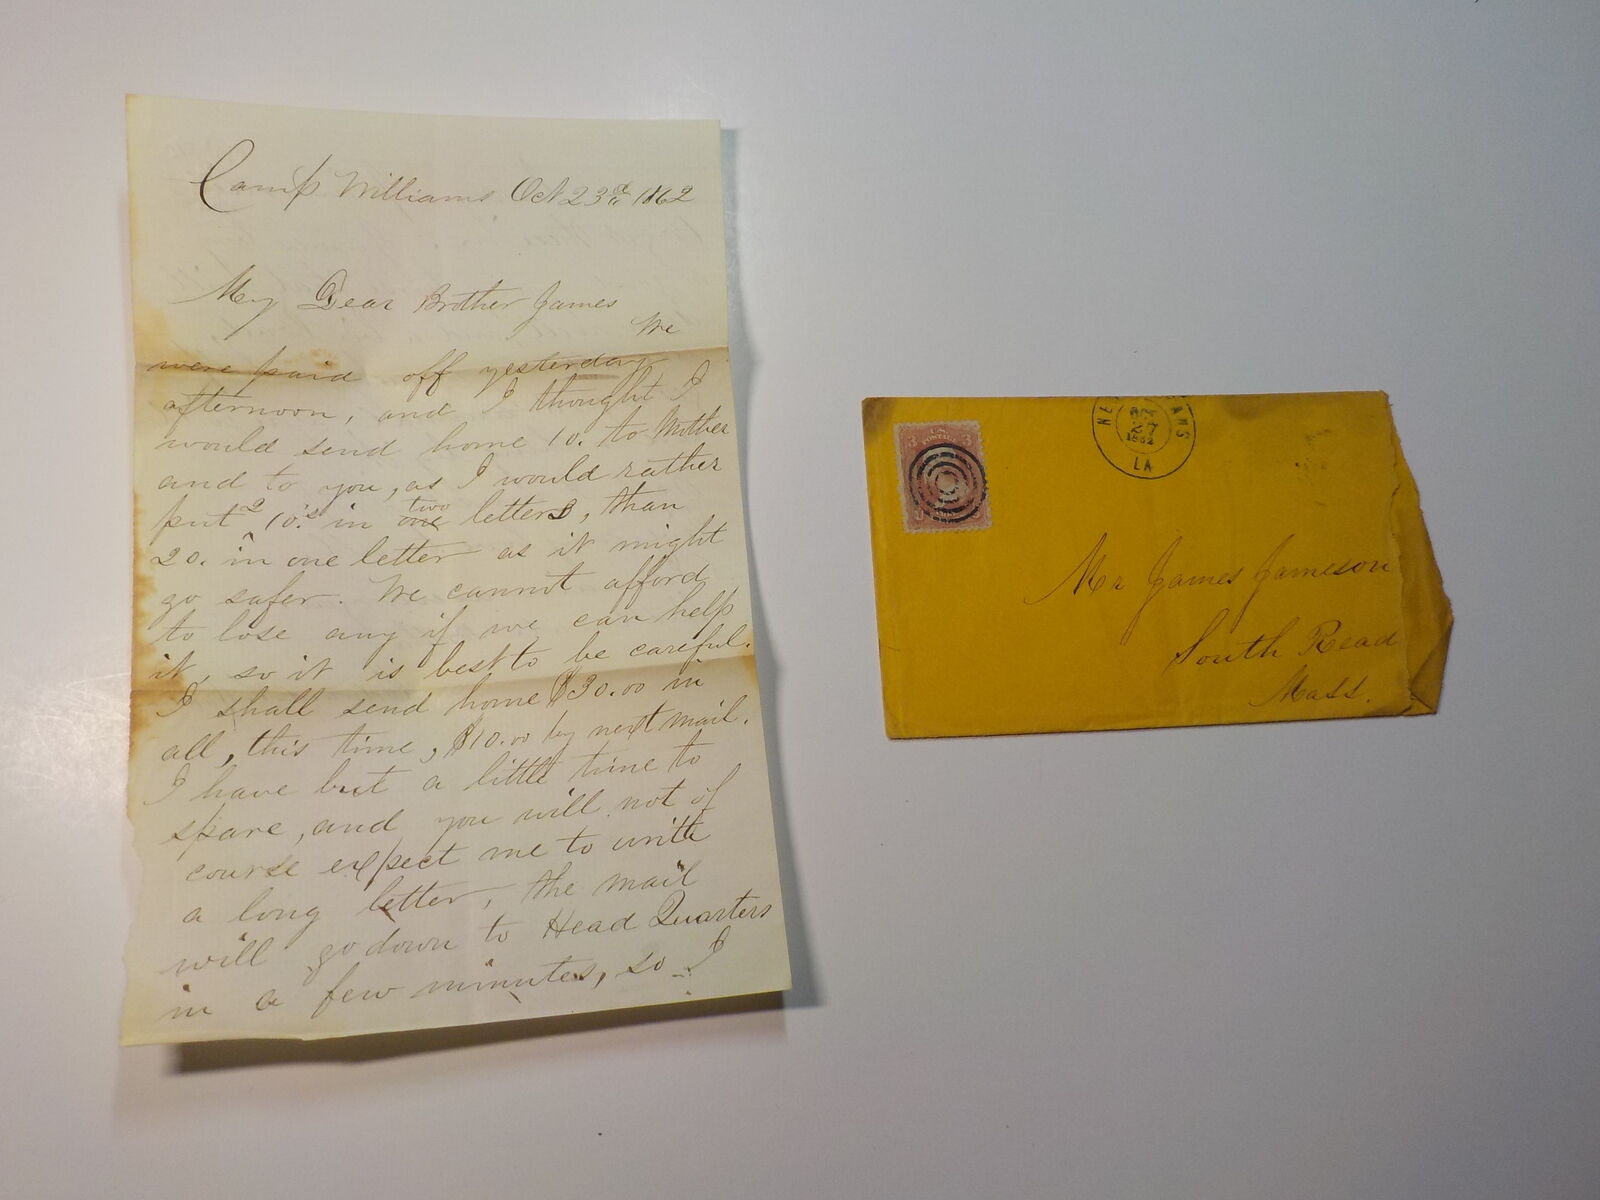 Camp Williams Oct 23d 1862
My Dear Brother James
We
were paid off yesterday
afternoon, and I thought I
would send home 10. to Mother
and to you, as I would rather
put 2 10.'s in one two letters, than
20. in one letter as it might
go safer. We cannot afford
to lose any if we can help
it, so it is best to be careful.
I shall send home $30.00 in
all, this time, $10.00 by next mail.
I have but a little time to
spare, and you will not of
course expect me to write
a long letter, the mail
will go down to Head Quarters
in a few minutes, so I
3 U.S. POSTAGE 3
NE ANS
27
1862
LA
Mr James Jameson
South Read
Mass.